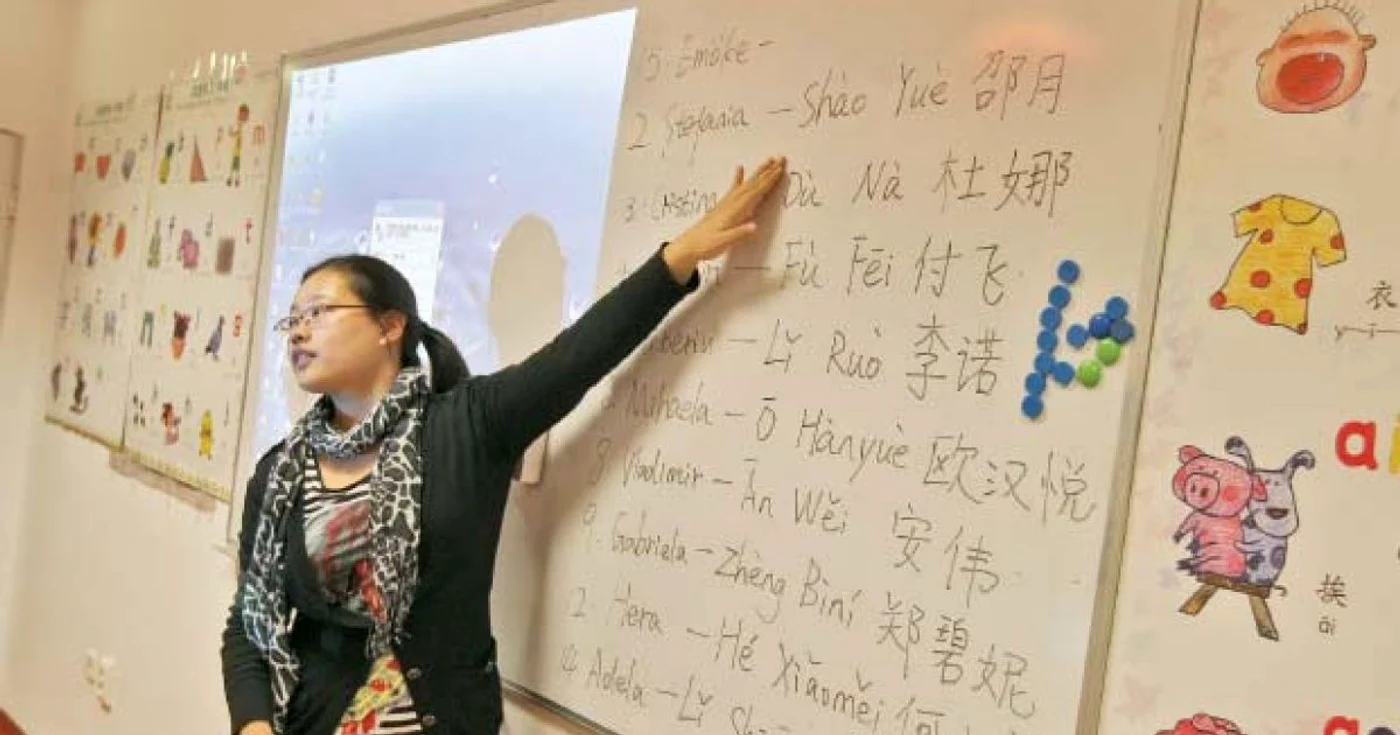 15. Emőke -
2. Stefania - Shào Yuè 邵月
3. Cristina Dù Nà 杜娜
- Fù Fēi 付飞
- Lǐ Ruò 李诺
Mihaela - Ō Hànyuè 欧汉悦
8. Vladimir - Ān Wěi 安伟
9. Gabriela - Zhèng Bìní 郑碧妮
2. Hera - Hé Xiǎoměi 何
Adela - Lǐ
衣
y - ī
挨
āi
a